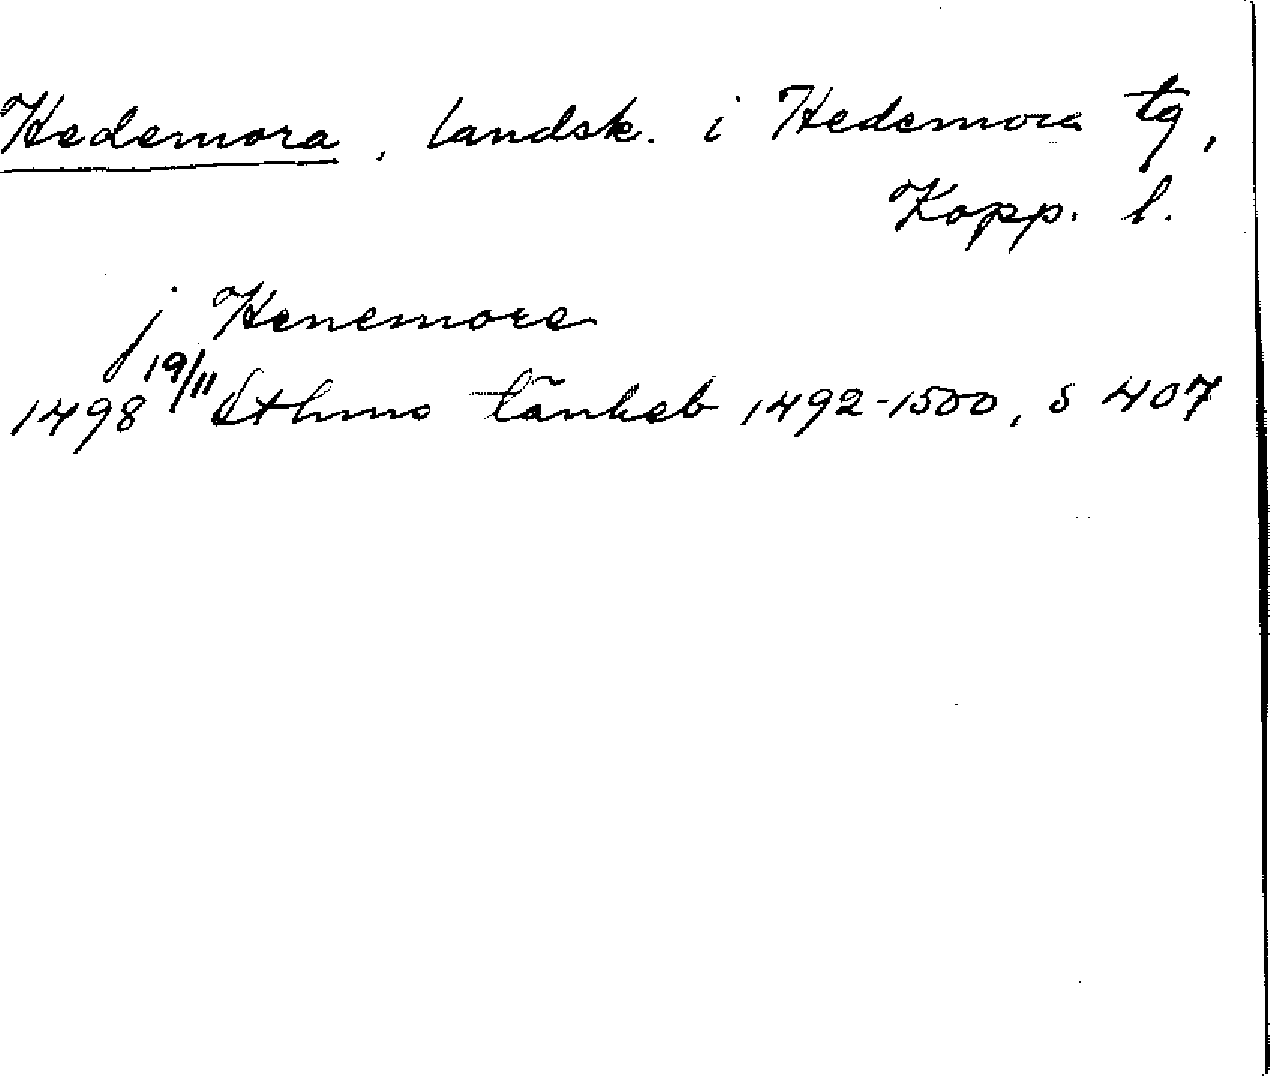 Hedemora, landsk. i Hedemora tg,
Kopp. l.
j Henemore
1498 19/11 Sthms tänkeb 1492-1500, s 407